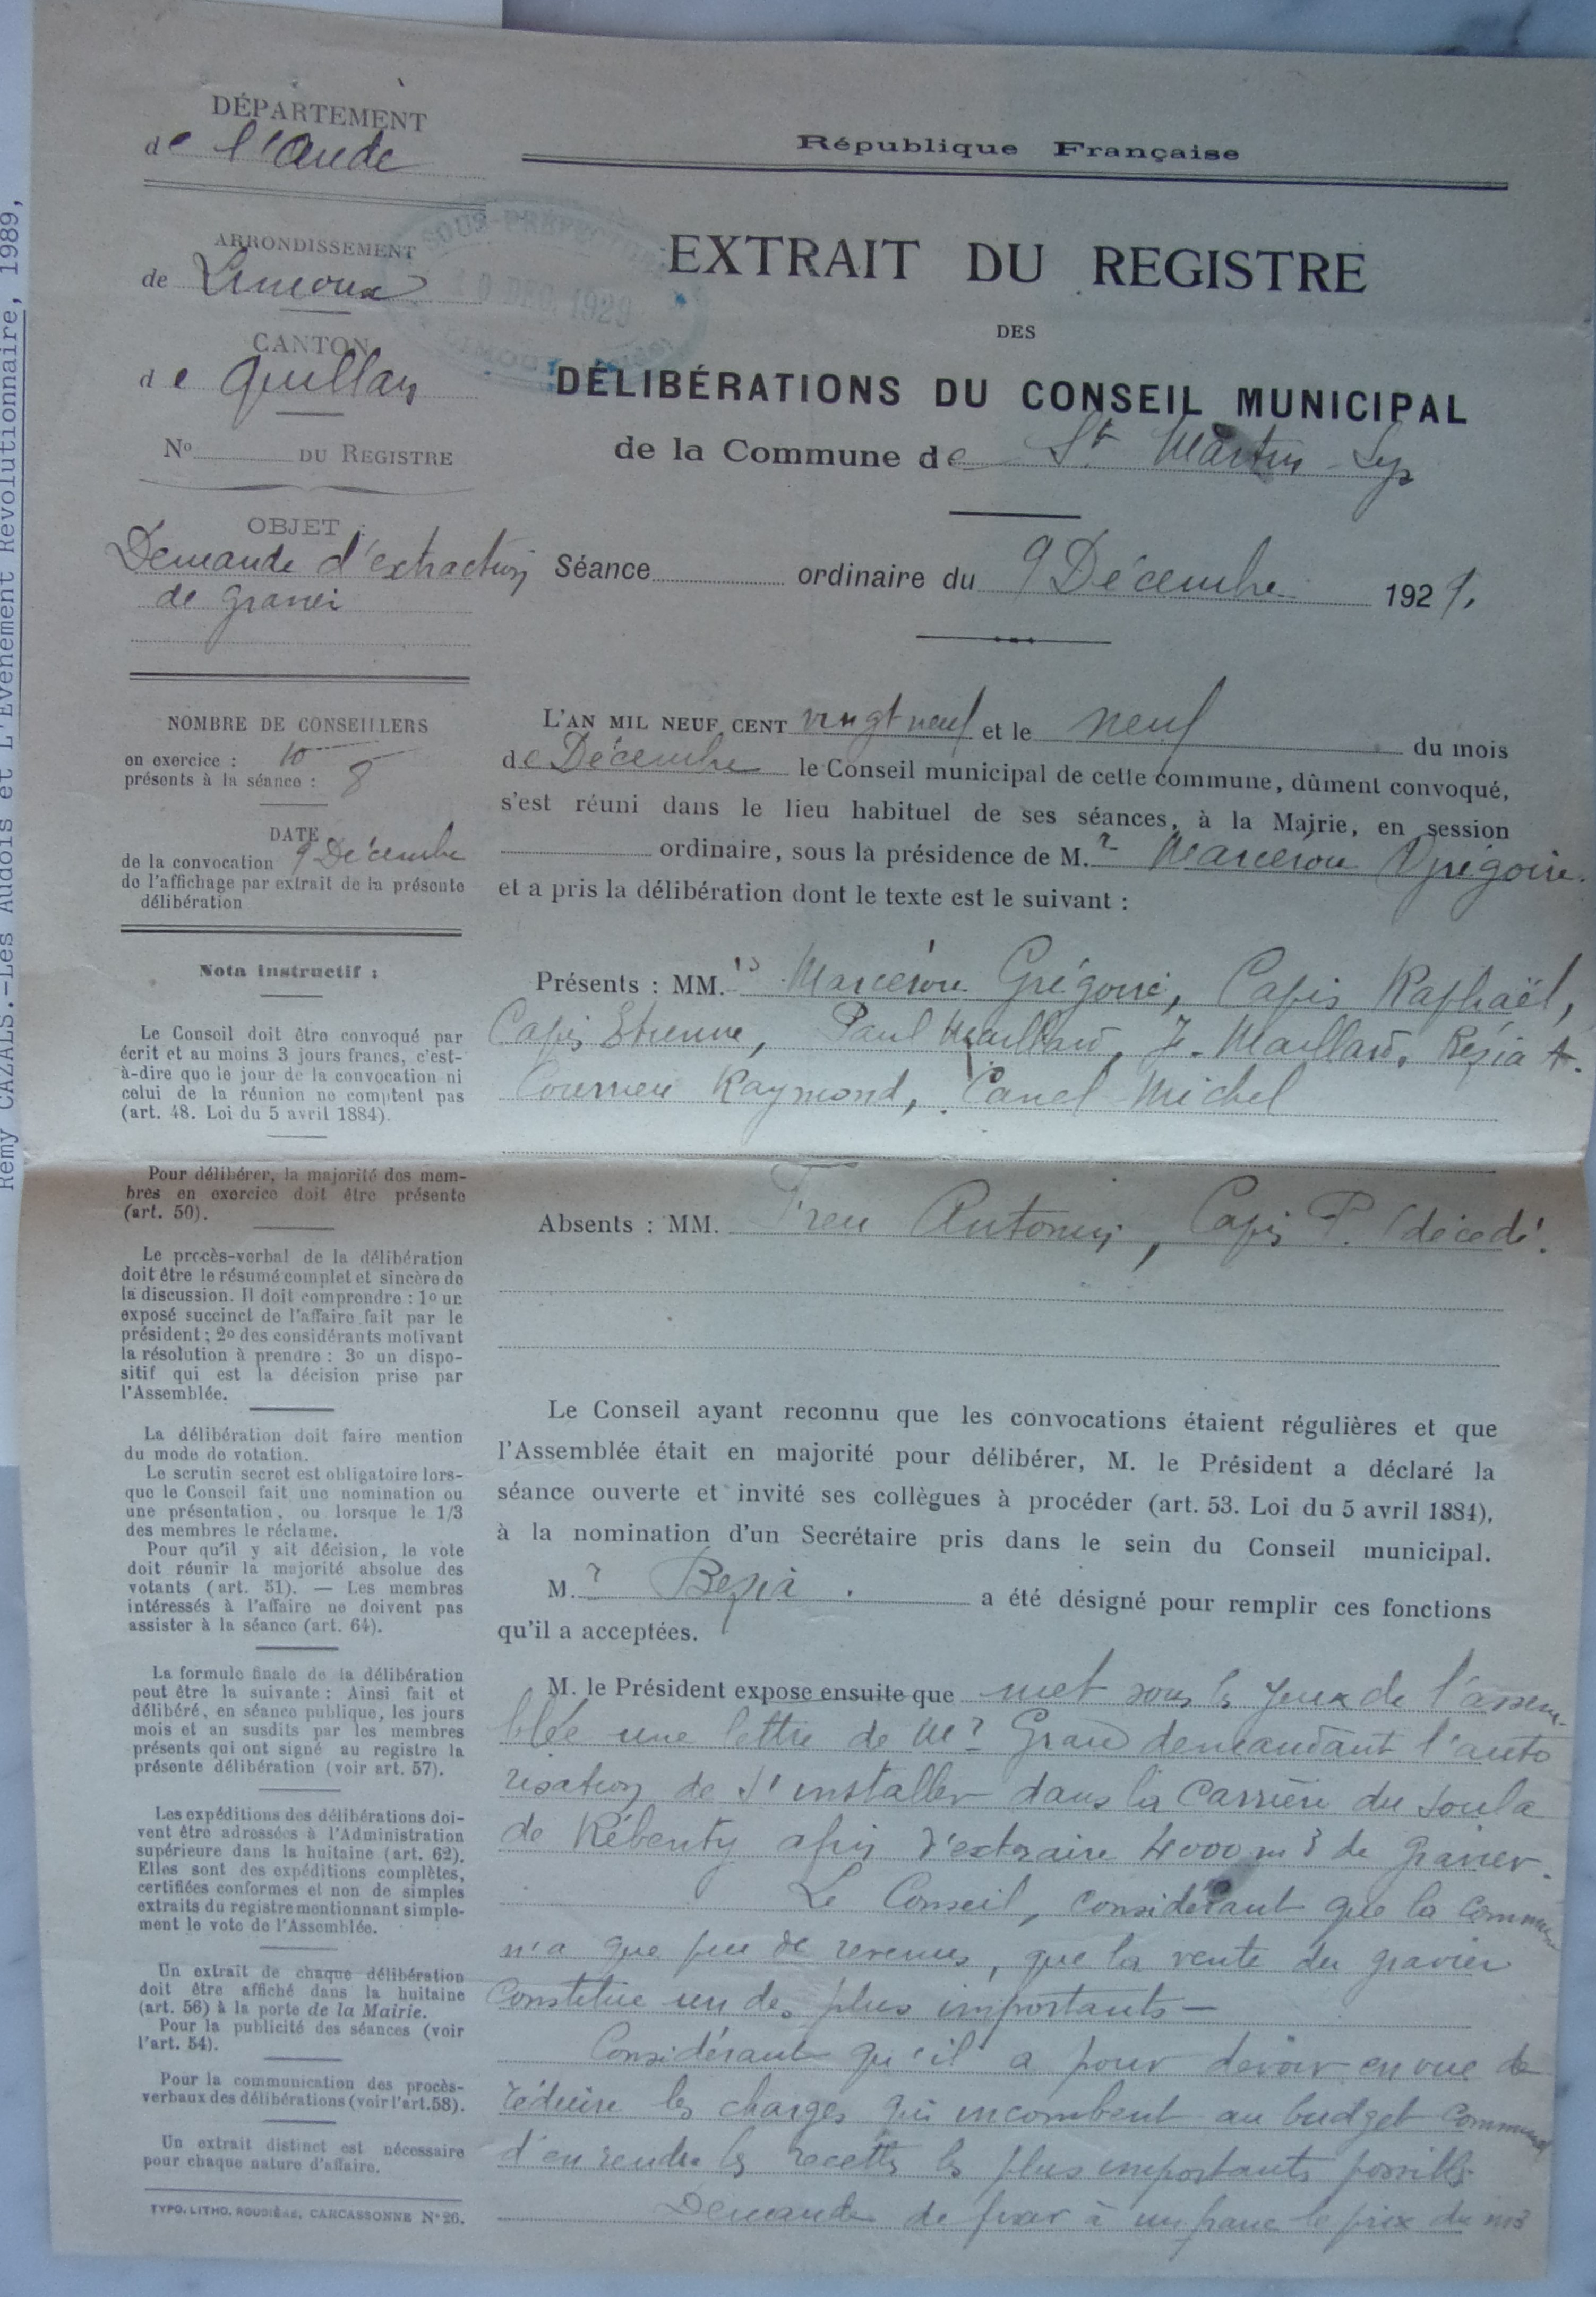 Rémy CAZALS.-Les Audois et L'Evènement Révolutionnaire, 1989,
DÉPARTEMENT
de l'Aude
République Française
ARRONDISSEMENT
de Limoux
SOUS-PRÉFECTURE
DEC. 1929
CANTON
de Quillan
No DU REGISTRE
OBJET :
Demande d'extraction
de gravier
EXTRAIT DU REGISTRE
DES
DÉLIBÉRATIONS DU CONSEIL MUNICIPAL
de la Commune de St Martin Lys
Séance ordinaire du 9 Décembre 1929.
NOMBRE DE CONSEILLERS
en exercice : 10
présents à la séance : 8
DATE
de la convocation 9 Décembre
de l'affichage par extrait de la présente
délibération
Nota instructif :
Le Conseil doit être convoqué par
écrit et au moins 3 jours francs, c'est-
à-dire que le jour de la convocation ni
celui de la réunion ne comptent pas
(art. 48. Loi du 5 avril 1884).
Pour délibérer, la majorité des mem-
bres en exercice doit être présente
(art. 50).
Le procès-verbal de la délibération
doit être le résumé complet et sincère de
la discussion. Il doit comprendre : 1o un
exposé succinct de l'affaire fait par le
président ; 2o des considérants motivant
la résolution à prendre : 3o un dispo-
sitif qui est la décision prise par
l'Assemblée.
La délibération doit faire mention
du mode de votation.
Le scrutin secret est obligatoire lors-
que le Conseil fait une nomination ou
une présentation, ou lorsque le 1/3
des membres le réclame.
Pour qu'il y ait décision, le vote
doit réunir la majorité absolue des
votants (art. 51). — Les membres
intéressés à l'affaire ne doivent pas
assister à la séance (art. 64).
La formule finale de la délibération
peut être la suivante : Ainsi fait et
délibéré, en séance publique, les jours
mois et an susdits par les membres
présents qui ont signé au registre la
présente délibération (voir art. 57).
Les expéditions des délibérations doi-
vent être adressées à l'Administration
supérieure dans la huitaine (art. 62).
Elles sont des expéditions complètes,
certifiées conformes et non de simples
extraits du registre mentionnant simple-
ment le vote de l'Assemblée.
Un extrait de chaque délibération
doit être affiché dans la huitaine
(art. 56) à la porte de la Mairie.
Pour la publicité des séances (voir
l'art. 54).
Pour la communication des procès-
verbaux des délibérations (voir l'art.58).
Un extrait distinct est nécessaire
pour chaque nature d'affaire.
TYPO. LITHO. ROUDIÈRE, CARCASSONNE N° 26.
L'AN MIL NEUF CENT vingt neuf et le neuf du mois
de Décembre le Conseil municipal de cette commune, dûment convoqué,
s'est réuni dans le lieu habituel de ses séances, à la Mairie, en session
ordinaire, sous la présidence de M.r Marcerou Grégoire.
et a pris la délibération dont le texte est le suivant :
Présents : MM.rs Marcerou Grégoire, Capis Raphaël,
Capis Etienne, Paul Maillard, J. Maillard, Bézia A.
Courrieu Raymond, Canel Michel
Absents : MM. Freu Antonin, Capis P. (décédé.
Le Conseil ayant reconnu que les convocations étaient régulières et que
l'Assemblée était en majorité pour délibérer, M. le Président a déclaré la
séance ouverte et invité ses collègues à procéder (art. 53. Loi du 5 avril 1884),
à la nomination d'un Secrétaire pris dans le sein du Conseil municipal.
M.r Bezia. a été désigné pour remplir ces fonctions
qu'il a acceptées.
M. le Président expose ensuite que met sous les yeux de l'assem-
blée une lettre de Mr Graud demandant l'auto
risation de s'installer dans la carrière du Soula
de Rébenty afin d'extraire 4000 m3 de gravier.
Le Conseil, considérant que la commune
n'a que peu de revenus, que la vente du gravier
constitue un des plus importants —
Considérant qu'il a pour devoir en vue de
réduire les charges qui incombent au budget communal
d'en rendre les recettes les plus importants possibles
Demande de fixer à un franc le prix du m3